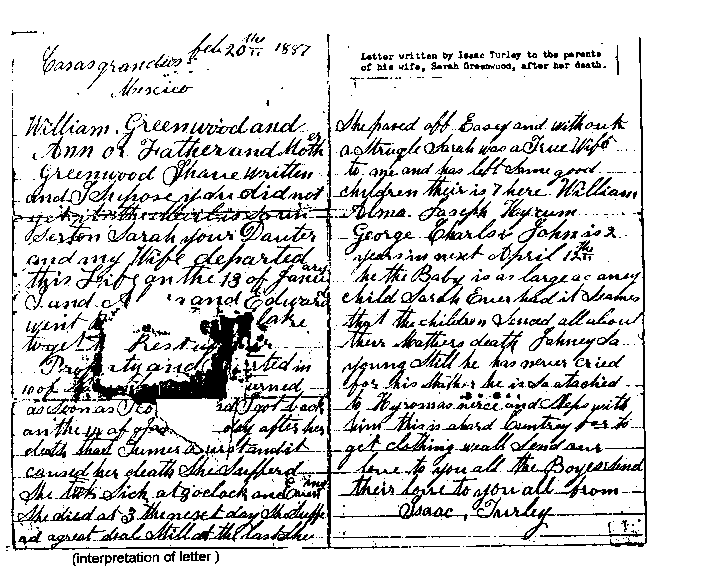 Casasgrandes feb 20th 1887
Mexico
William. Greenwood and
Ann or Father and Mother
Greenwood I have written
and I supose you did not
get it
Serton Sarah your Dauter
and my Wife departed
this Life on the 13 of Januery
I and A and Edward
went lake
to get Rest
Property and rted in
10 of turned
as soon as I go I got back
on the 14 of day after her
death that Tumer
caused her death She Sufferd
She tuk Sick at 8 oclock and
She died at 3 the next day She Suffe
rd a great deal Still at the last she
Letter written by Isaac Turley to the parents
of his wife, Sarah Greenwood, after her death.
She pased off Easey and without
a Strugle Sarah was a True Wife
to me and has left Some good
children their is 7 here William
Alma. Joseph Hyrum
George Charls John is 2
years in next April 12th
he the Baby is as large as aney
child Sarah Ever had it Seames
that the children Sences all about
their Mothers death Johney is
young Still he has never cried
for his Mother he is So atached
to Hyromas and Sleps with
him this is a hard Cuntrey for to
get clothing we all Send our
love to you all the Boyes Send
their love to you all from
Isaac, Turley
(interpretation of letter )